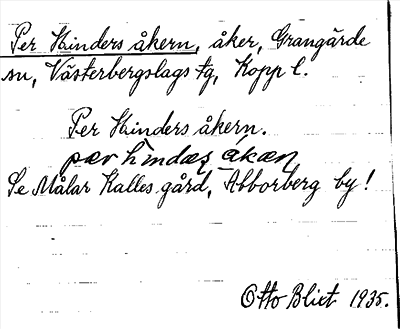 Per Hinders åkern, åker, Grangärde
sn, Västerbergslags tg, Kopp l.
Per Hinders åkern.
pær hindæs åkæn
Se Målar Kalles gård, Abborberg by!
Otto Blixt 1935.